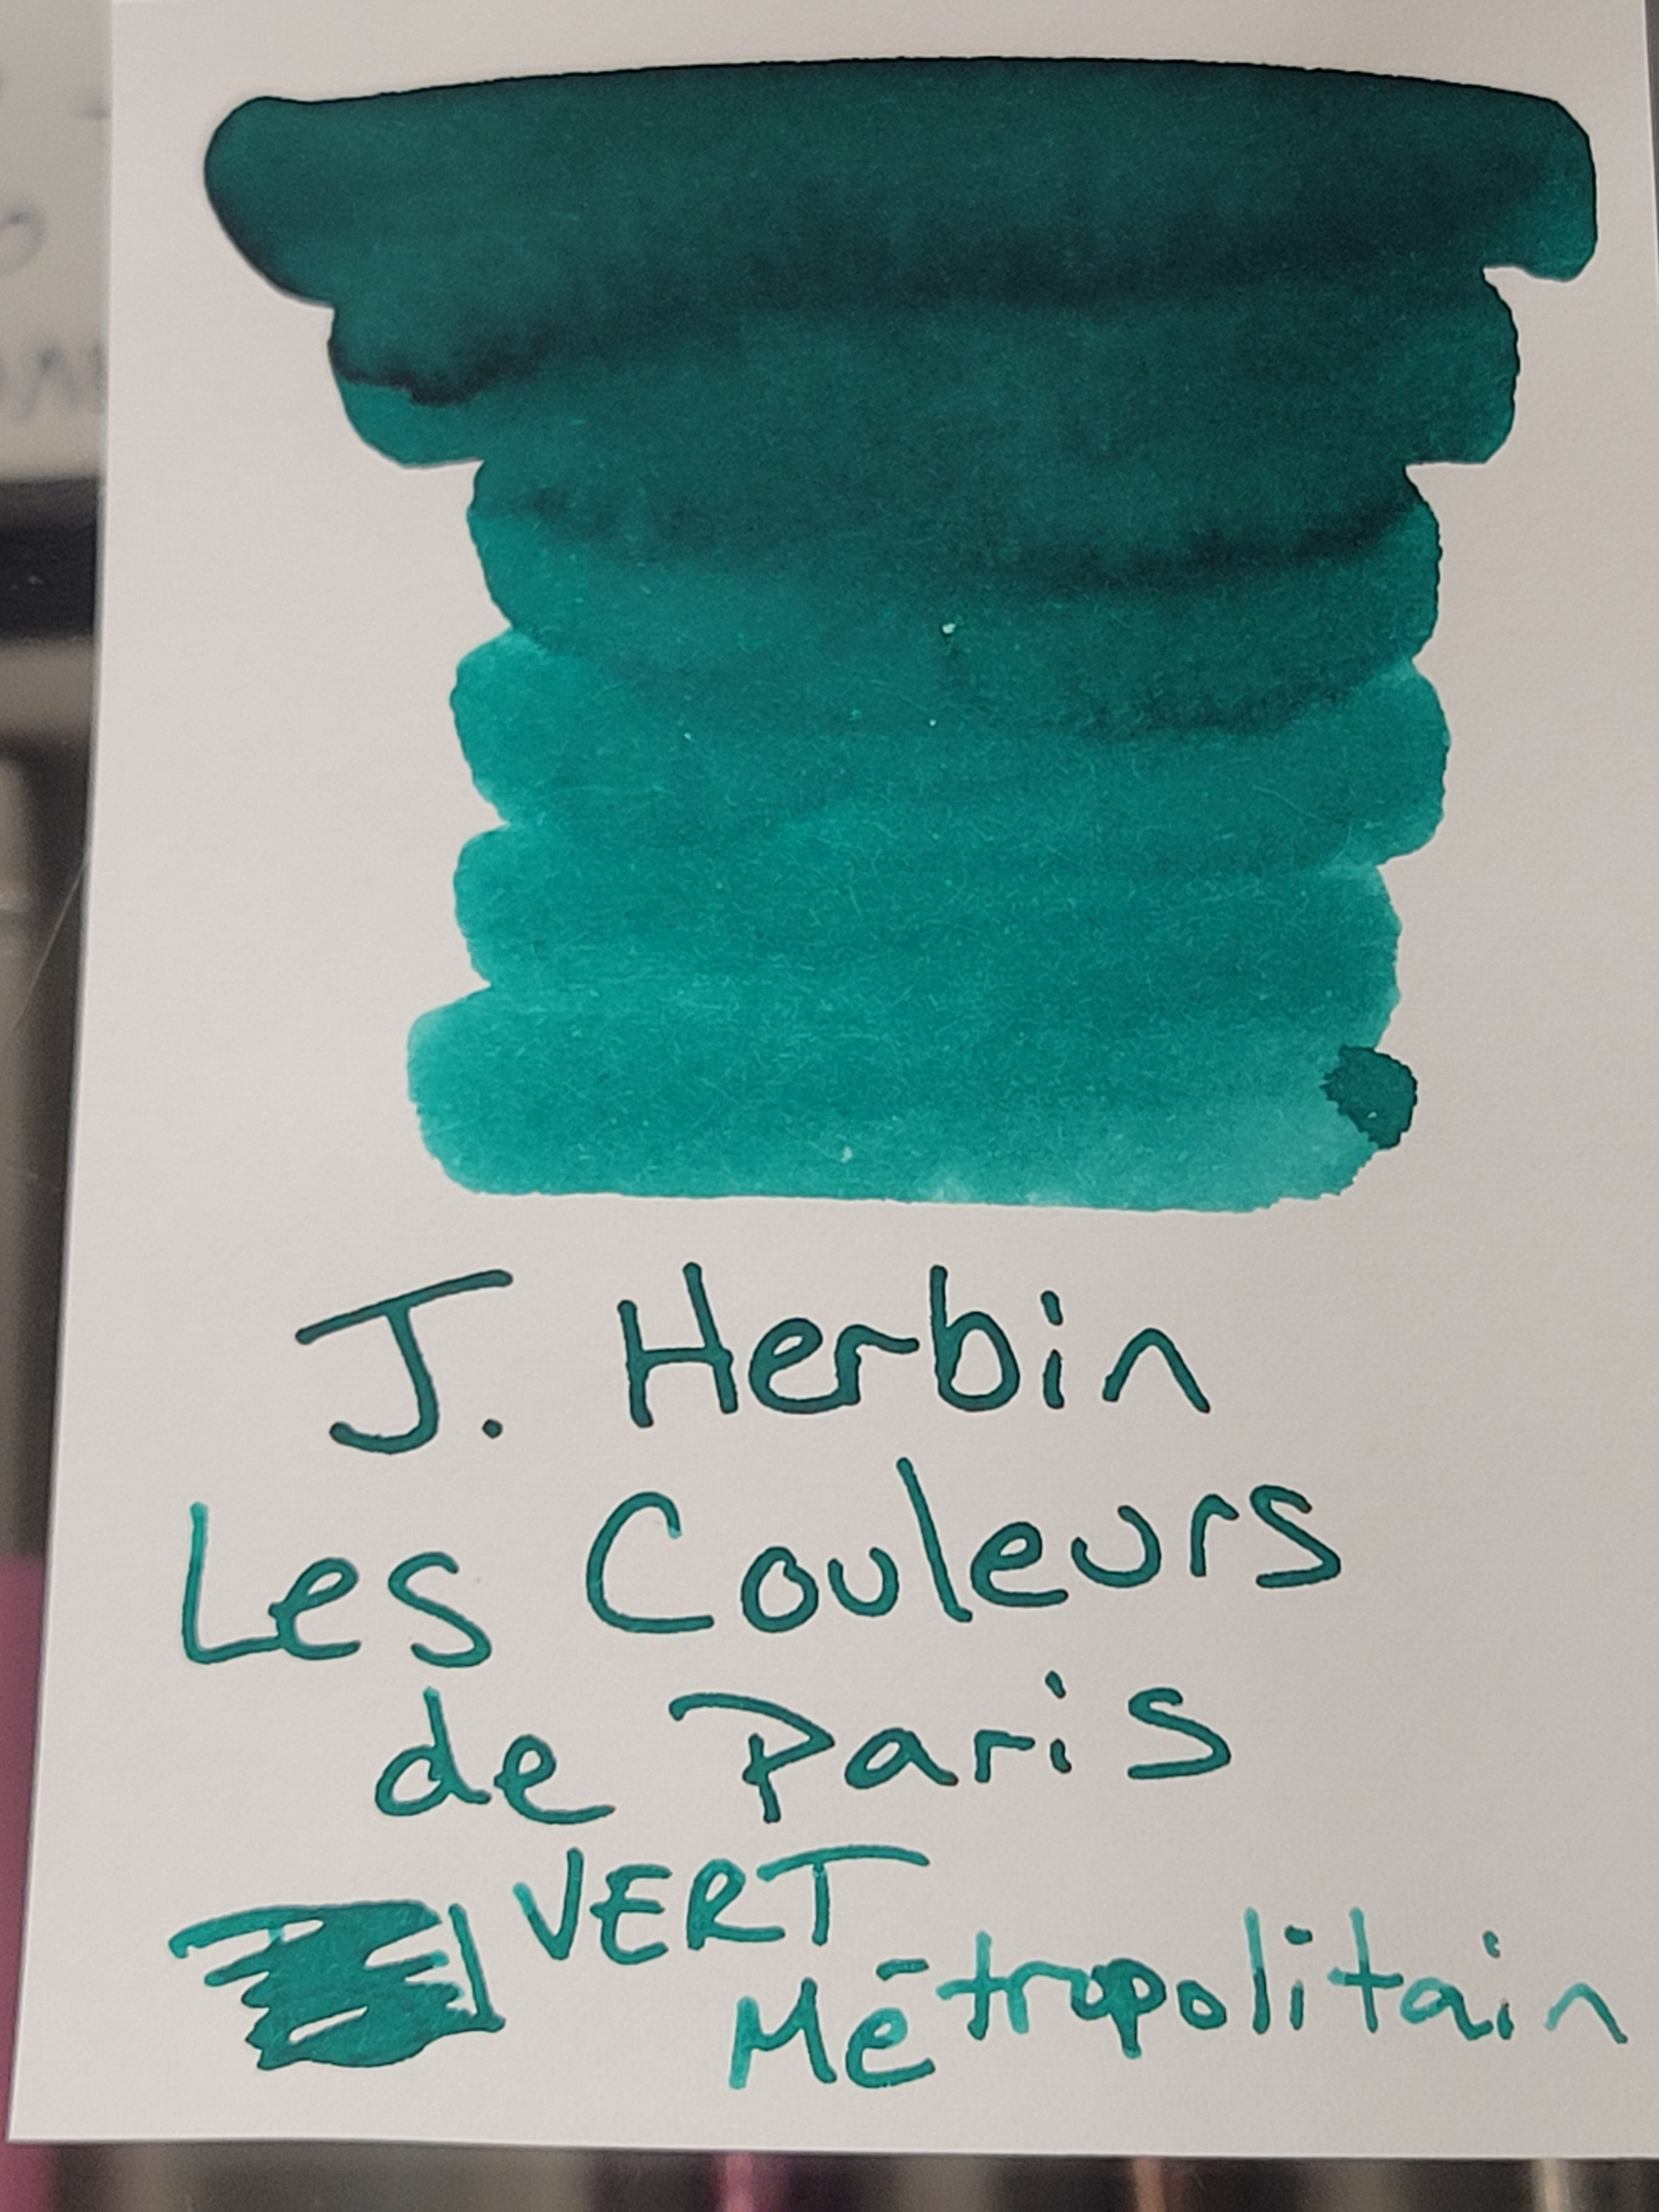 J. Herbin
Les Couleurs
de Paris
VERT
Métropolitain